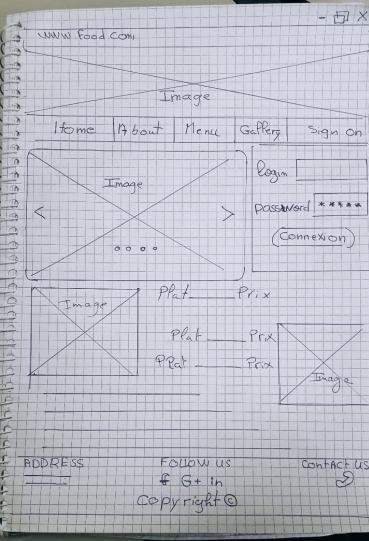 www.food.com
Image
Home About Menu Gallery Sign on
Image
login
password *****
Connexion
< >
Image
Plat Prix
Plat Prix
Plat Prix
Image
ADDRESS FOLLOW US CONTACT US
f G+ in
Copyright ©